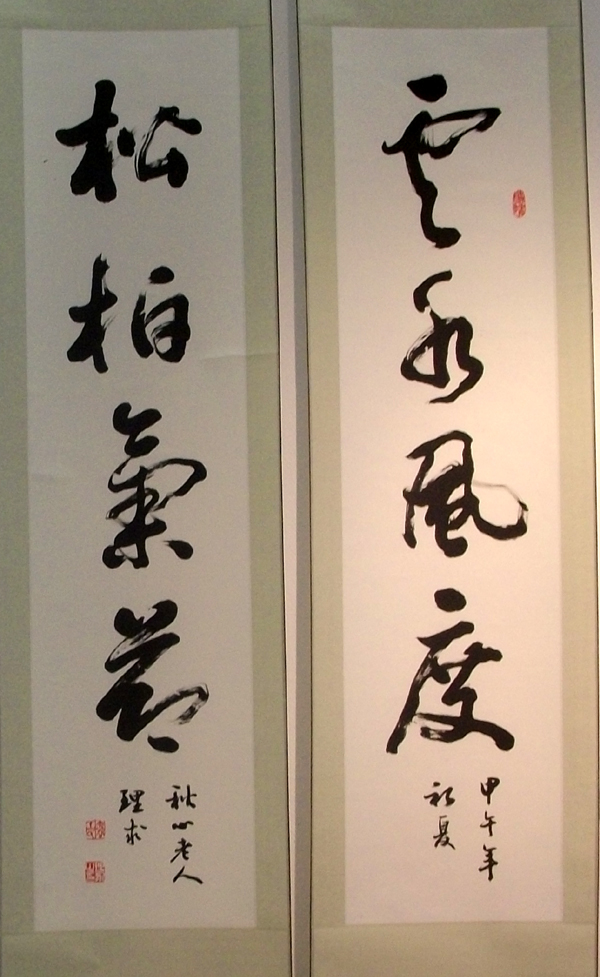 雲水風度
甲午年
初夏
松柏氣節
秋心老人
理求